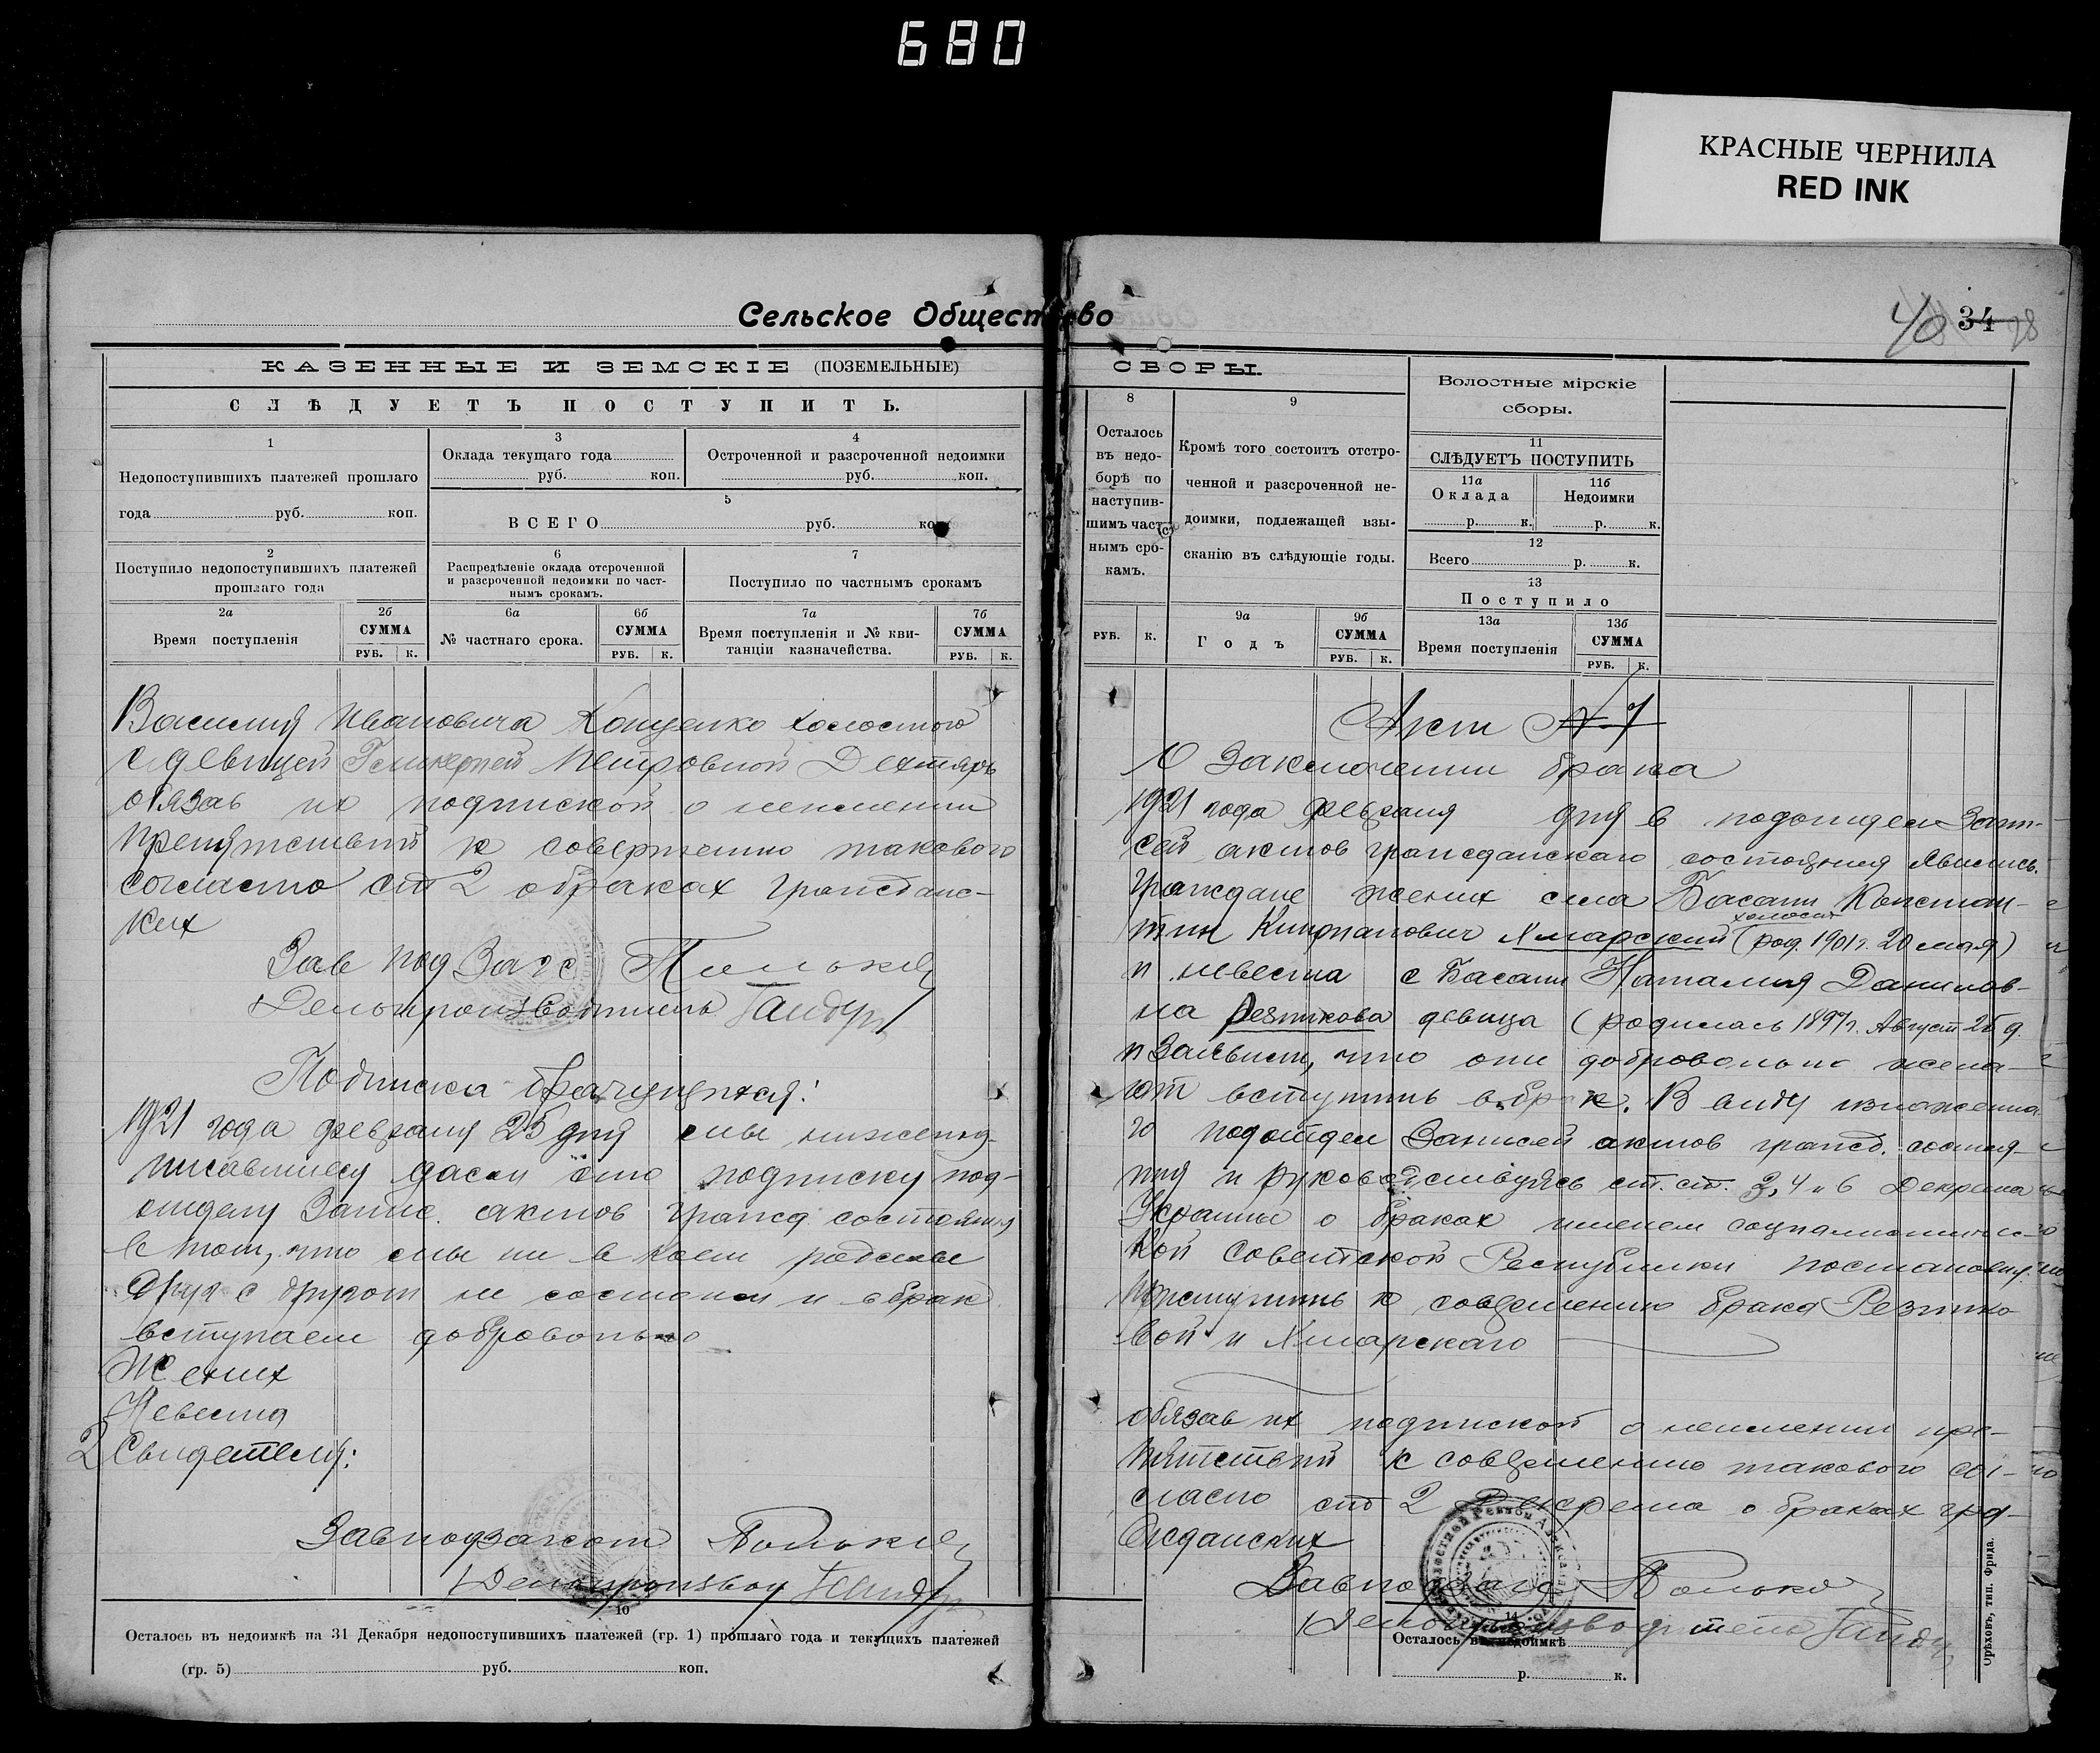 680
КРАСНЫЕ ЧЕРНИЛА
RED INK
Сельское Общество
40 34 28
КАЗЕННЫЕ И ЗЕМСКІЕ (ПОЗЕМЕЛЬНЫЕ)
СЛѢДУЕТЪ ПОСТУПИТЬ.
1
Недопоступившихъ платежей прошлаго
года руб. коп.
3
Оклада текущаго года
руб. коп.
4
Остроченной и разсроченной недоимки
руб. коп.
5
ВСЕГО руб. коп
2
Поступило недопоступившихъ платежей
прошлаго года
6
Распредѣленіе оклада отсроченной
и разсроченной недоимки по част-
нымъ срокамъ.
7
Поступило по частнымъ срокамъ
2а
Время поступленія
2б
СУММА
РУБ. К.
6а
№ частнаго срока.
6б
СУММА
РУБ. К.
7а
Время поступленія и № кви-
танціи казначейства.
7б
СУММА
РУБ. К.
Василия Ивановича Коценко холостого
с девицей Гликерией Петровной Дехтярь
обязав их подпиской о неимении
препятствий к совершению такового
согласно ст 2 о браках граждане-
ких
Зав под Загс
Делопроизводитель
Подписка брачущихся:
1921 года февраля 25 дня мы нижепод-
писавшиеся дали сию подписку под-
отделу Запис. актов гражд состояния
в том, что мы ни в коем родстве
друг с другом не состоим и в брак
вступаем добровольно
Жених
Невеста
2 Свидетеля:
Завподзагсом
Делопроизвод
10
Осталось въ недоимкѣ на 31 Декабря недопоступившихъ платежей (гр. 1) прошлаго года и текущихъ платежей
(гр. 5) руб. коп.
СБОРЫ.
8
Осталось
въ недо-
борѣ по
наступив-
шимъ част-
нымъ сро-
камъ.
РУБ. К.
9
Кромѣ того состоитъ отстро-
ченной и разсроченной не-
доимки, подлежащей взы-
сканію въ слѣдующіе годы.
9а
Годъ
9б
СУММА
РУБ. К.
Волостные мірскіе
сборы.
11
СЛѢДУЕТЪ ПОСТУПИТЬ
11а
Оклада
р. к.
11б
Недоимки
р. к.
12
Всего р. к.
13
Поступило
13а
Время поступленія
13б
СУММА
РУБ. К.
Акт № 7
О Заключении брака
1921 года февраля дня в подотдел Запи-
сей актов гражданскаго состояния явились
граждане жених села Басани Констан-
холост
тин Киприанович Хмарский (род. 1901 г. 20 мая)
и невеста с Басани Наталия Данилов-
на Резникова девица (родилась 1897 г. Август 26 д.
и Заявили, что они добровольно жела-
ют вступить в брак. В виду изложенна
го подотдел Записей актов гражд. состоя-
ния и руководствуясь ст. ст. 3, 4 и 6 Декрета
Украины о браках именем социалистичес-
кой Советской Республики постановил:
Приступить к совершению брака Резнико
вой и Хмарскаго
обязав их подпиской о неимении пре-
пятствий к совершению такового со-
гласно ст 2 Декрета о браках гра-
жданских
Завподзагс
Делопроизводитель
14
Осталось въ недоимкѣ
р. к.
Орѣховъ, тип. Фрида.